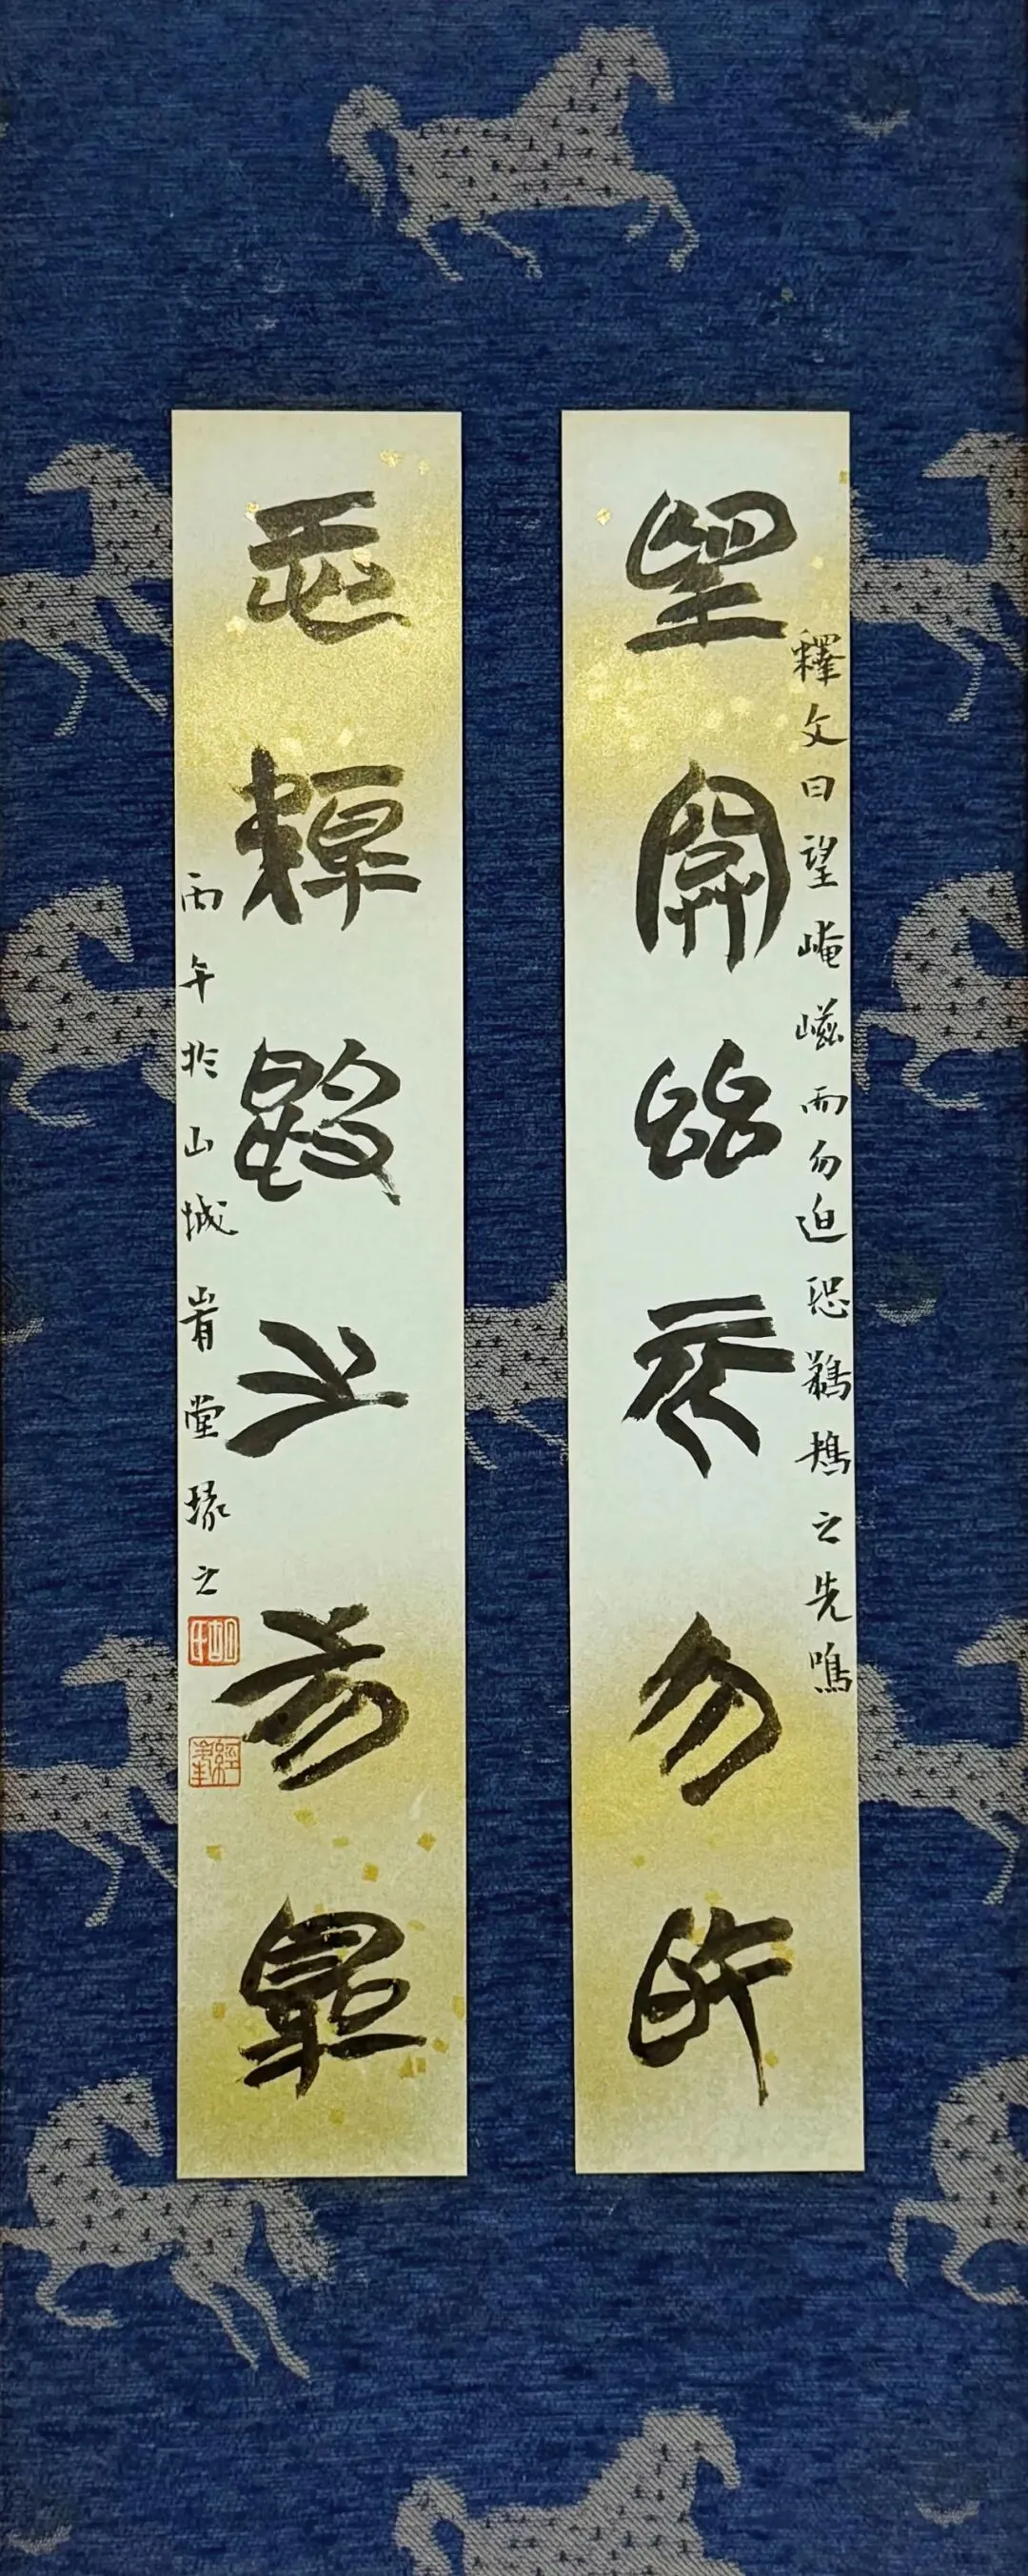 釋文曰望崦嵫而勿迫恐鵜鴂之先鳴
望崦嵫而勿迫
恐鵜鴂之先鳴
丙午於山城肯堂琢之
胡氏